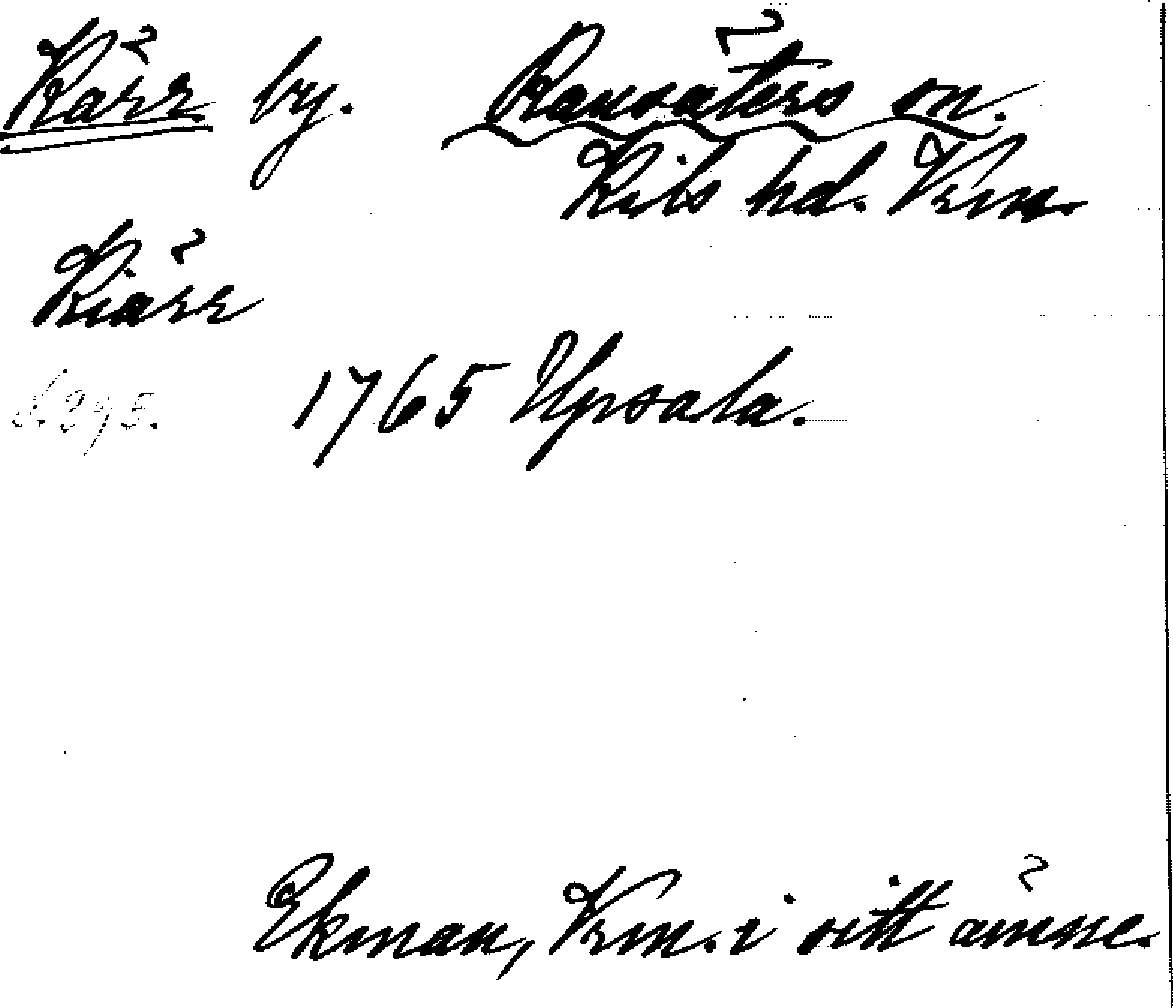 Kärr by. Ransäters sn.
Kils hd. Vrm.
Kiärr
S. 395. 1765 Upsala.
Ekman, Vrm. i sitt ämne.